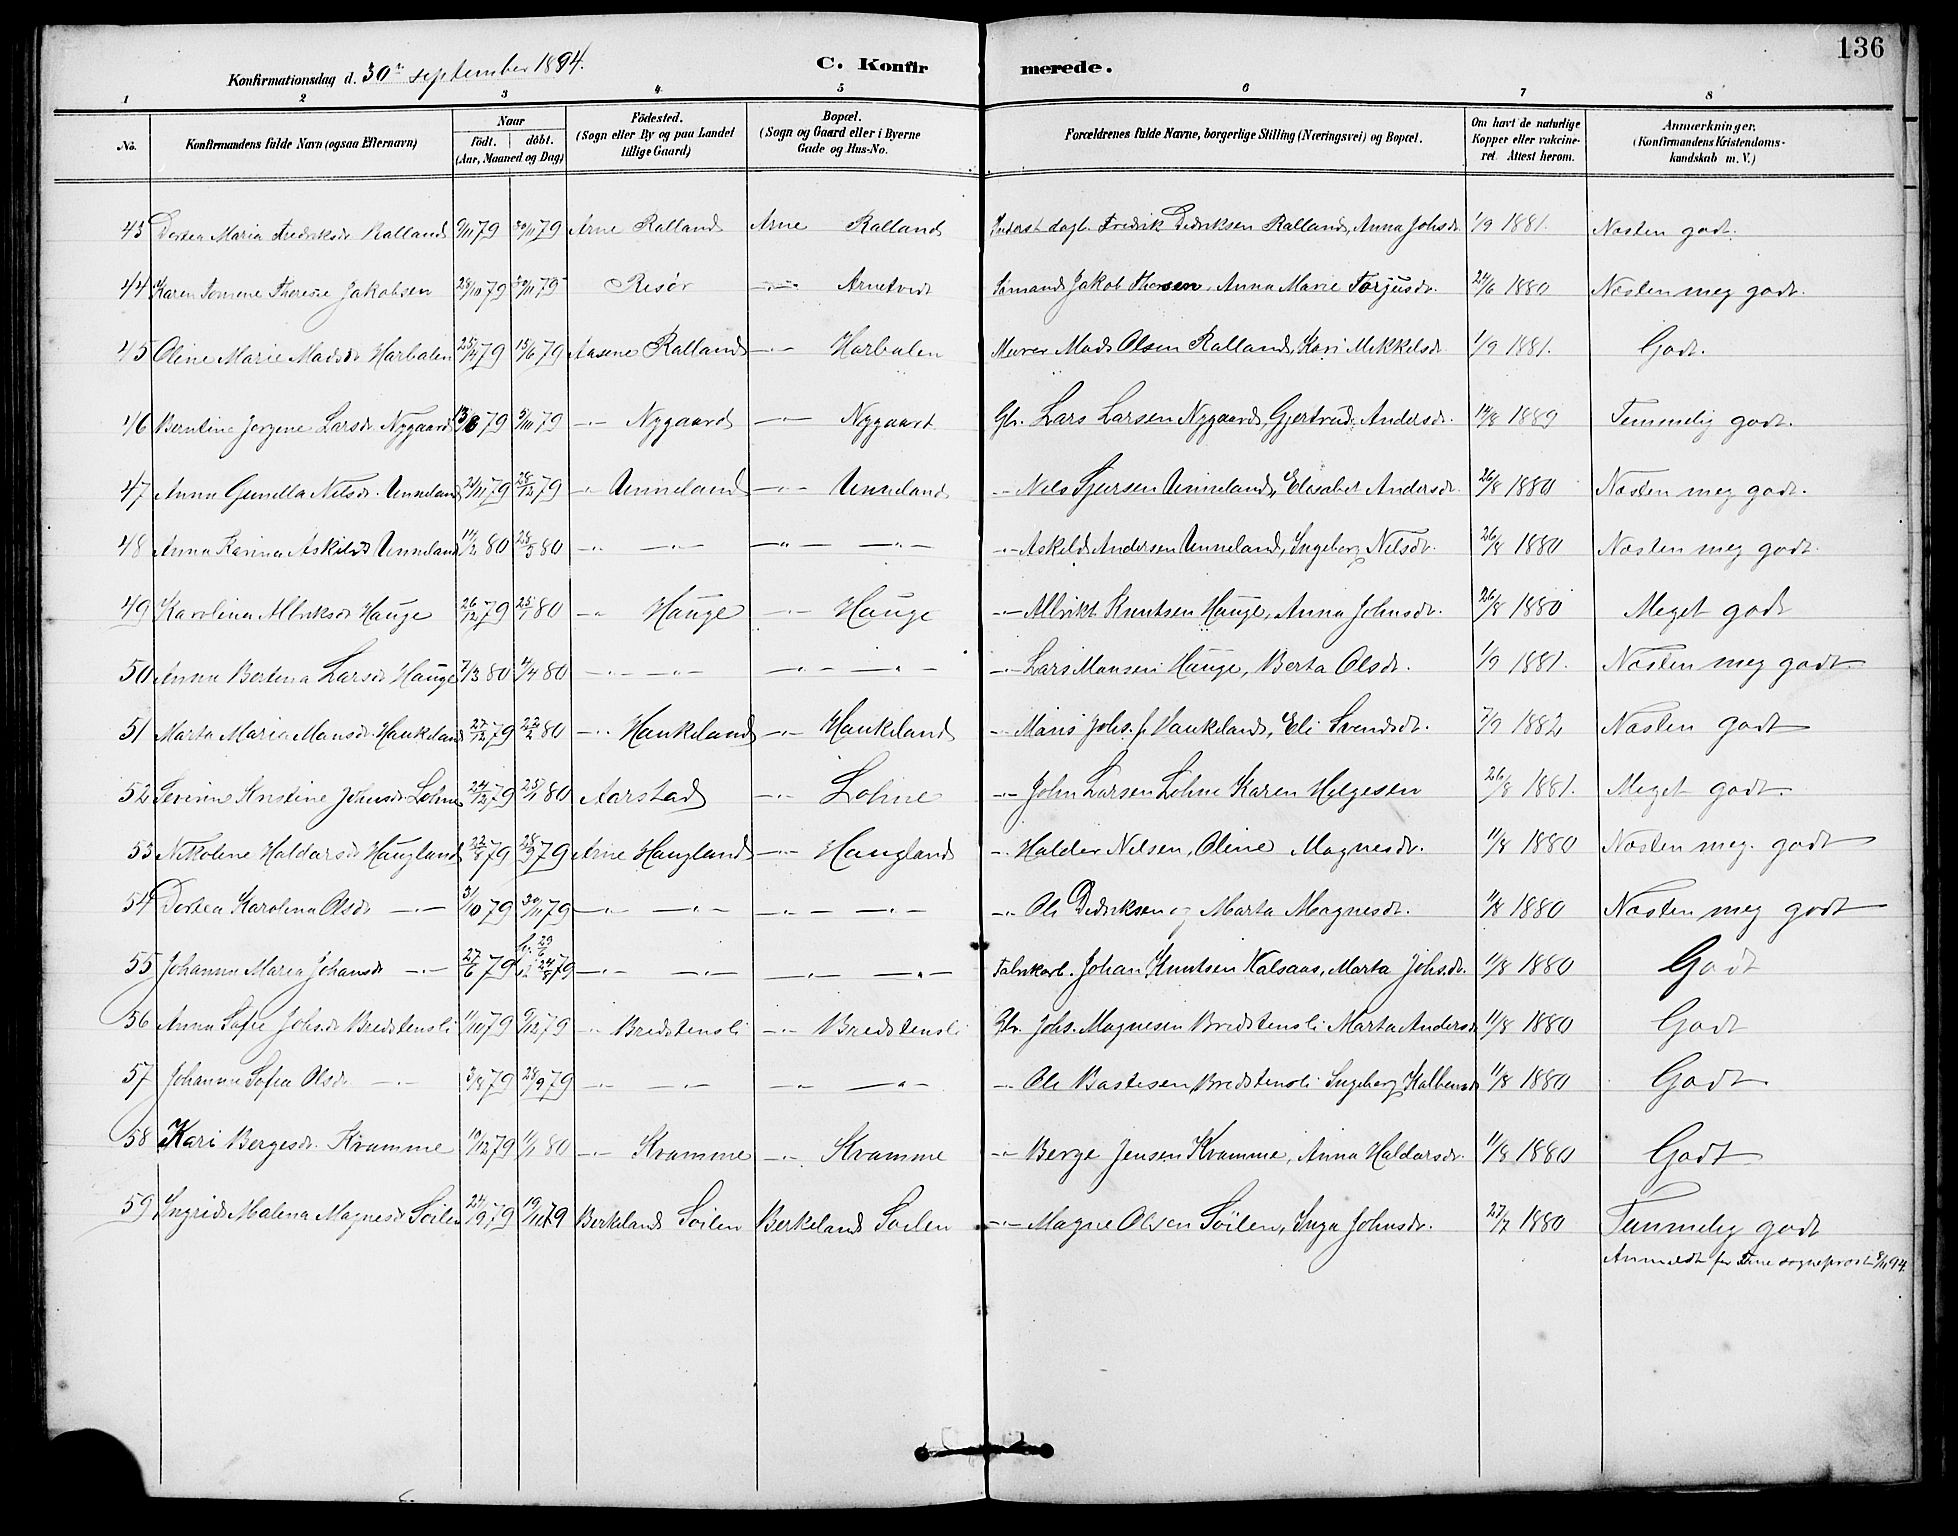 136
Konfirmationsdag d. 30te september 1894.
C. Konfirmerede.
1 2 3 4 5 6 7 8
No.
Konfirmandens fulde Navn (ogsaa Efternavn)
Naar
födt. döbt.
(Aar, Maaned og Dag)
Födested.
(Sogn eller By og paa Landet
tillige Gaard)
Bopæl.
(Sogn og Gaard eller i Byerne
Gade og Hus-No.
Forældrenes fulde Navne, borgerlige Stilling (Næringsvei) og Bopæl.
Om havt de naturlige
Kopper eller vakcine-
ret. Attest herom.
Anmærkninger.
(Konfirmandens Kristendoms-
kundskab m. V.)
43 Dortea Maria Fredriksdr Ralland 9/11 79 30/11 79 Arne Ralland Arne Ralland Fredrik Dedriksen Ralland, Anna Johsdr. 1/9 1881. Næsten godt.
44 Karen Tomene Therese Jakobsen 28/10 79 30/11 79 Risör -"- Arnetvedt Sömand Jakob Thorsen, Anna Marie Torjusdr. 24/6 1880 Næsten meg godt.
45 Oline Marie Madsdr Harbalen 25/4 79 15/6 79 Aasene Ralland -"- Harbalen Murer Mads Olsen Ralland, Kari Mikkelsdr 1/9 1881. Godt.
46 Berntine Jorgene Larsdr Nygaard 13/8 79 5/10 79 -"- Nygaard -"- Nygaard Gbr. Lars Larsen Nygaard, Gjertrud Andersdr. 14/8 1889 Temmelig godt.
47 Anna Gundla Nilsdr. Unneland 21/11 79 28/12 79 -"- Unneland -"- Unneland -"- Nils Sjursen Unneland, Elisabet Andersdr. 26/8 1880 Næsten meg godt.
48 Anna Karina Askildsdr Unneland 14/2 80 28/3 80 -"- -"- -"- -"- -"- Askild Andersen Unneland, Ingeborg Nilsdr. 26/8 1880 Næsten meg godt.
49 Karolina Albriktsdr Hauge 26/12 79 25/1 80 -"- Hauge -"- Hauge -"- Albrikt Knutsen Hauge, Anna Johnsdr. 26/8 1880 Meget godt
50 Anna Bertina Larsdr Hauge 7/3 80 4/4 80 -"- -"- -"- -"- -"- Lars Monsen Hauge, Berta Olsdr. 1/9 1881. Næsten meg godt
51 Marta Maria Monsdr. Haukeland 27/12 79 22/2 80 -"- Haukeland -"- Haukeland -"- Mons Johs. f. Haukeland, Eli Svendsdr. 7/9 1882 Næsten godt
52 Severine Kristine Johnsdr Lohne 24/12 79 25/1 80 Aarstad -"- Lohne -"- John Larsen Lohne Karen Helgesen 26/8 1881. Meget godt.
53 Nikoline Haldorsdr Haugland 22/8 79 28/9 79 Arne Haugland -"- Haugland -"- Haldor Nilsen, Oline Magnesdr. 11/8 1880 Næsten meg. godt
54 Dortea Karolina Olsdr -"- 3/10 79 30/11 79 -"- -"- -"- -"- -"- Ole Dedriksen og Marta Magnesdr. 11/8 1880 Næsten meg godt
55 Johanna Maria Johansdr -"- 27/6 79 29/6 24/8 79 -"- -"- -"- -"- Fabrikarb. Johan Knutsen Kalsaas, Marta Johsdr. 11/8 1880 Godt
56 Anna Sofie Johsdr Bredstensli 11/10 79 9/12 79 -"- Bredstensli -"- Bredstensli Gbr. Johs. Magnesen Bredstensli Marta Andersdr 11/8 1880 Godt
57 Johanna Sofia Olsdr -"- 3/8 79 28/9 79 -"- -"- -"- -"- -"- Ole Bastesen Bredstensli Ingeborg 11/8 1880 Godt
58 Kari Bergesdr. Kvamme 10/12 79 11/1 80 -"- Kvamme -"- Kvamme -"- Berge Jensen Kvamme, Anna Haldorsdr. 11/8 1880 Godt
59 Ingrid Malena Magnesdr Söilen 24/9 79 19/10 79 Berkeland Söilen Berkeland Söilen -"- Magne Olsen Söilen, Inga Johnsdr. 27/7 1880 Temmelig godt
Anmeldt for Fane sogneprest 8/11 94.